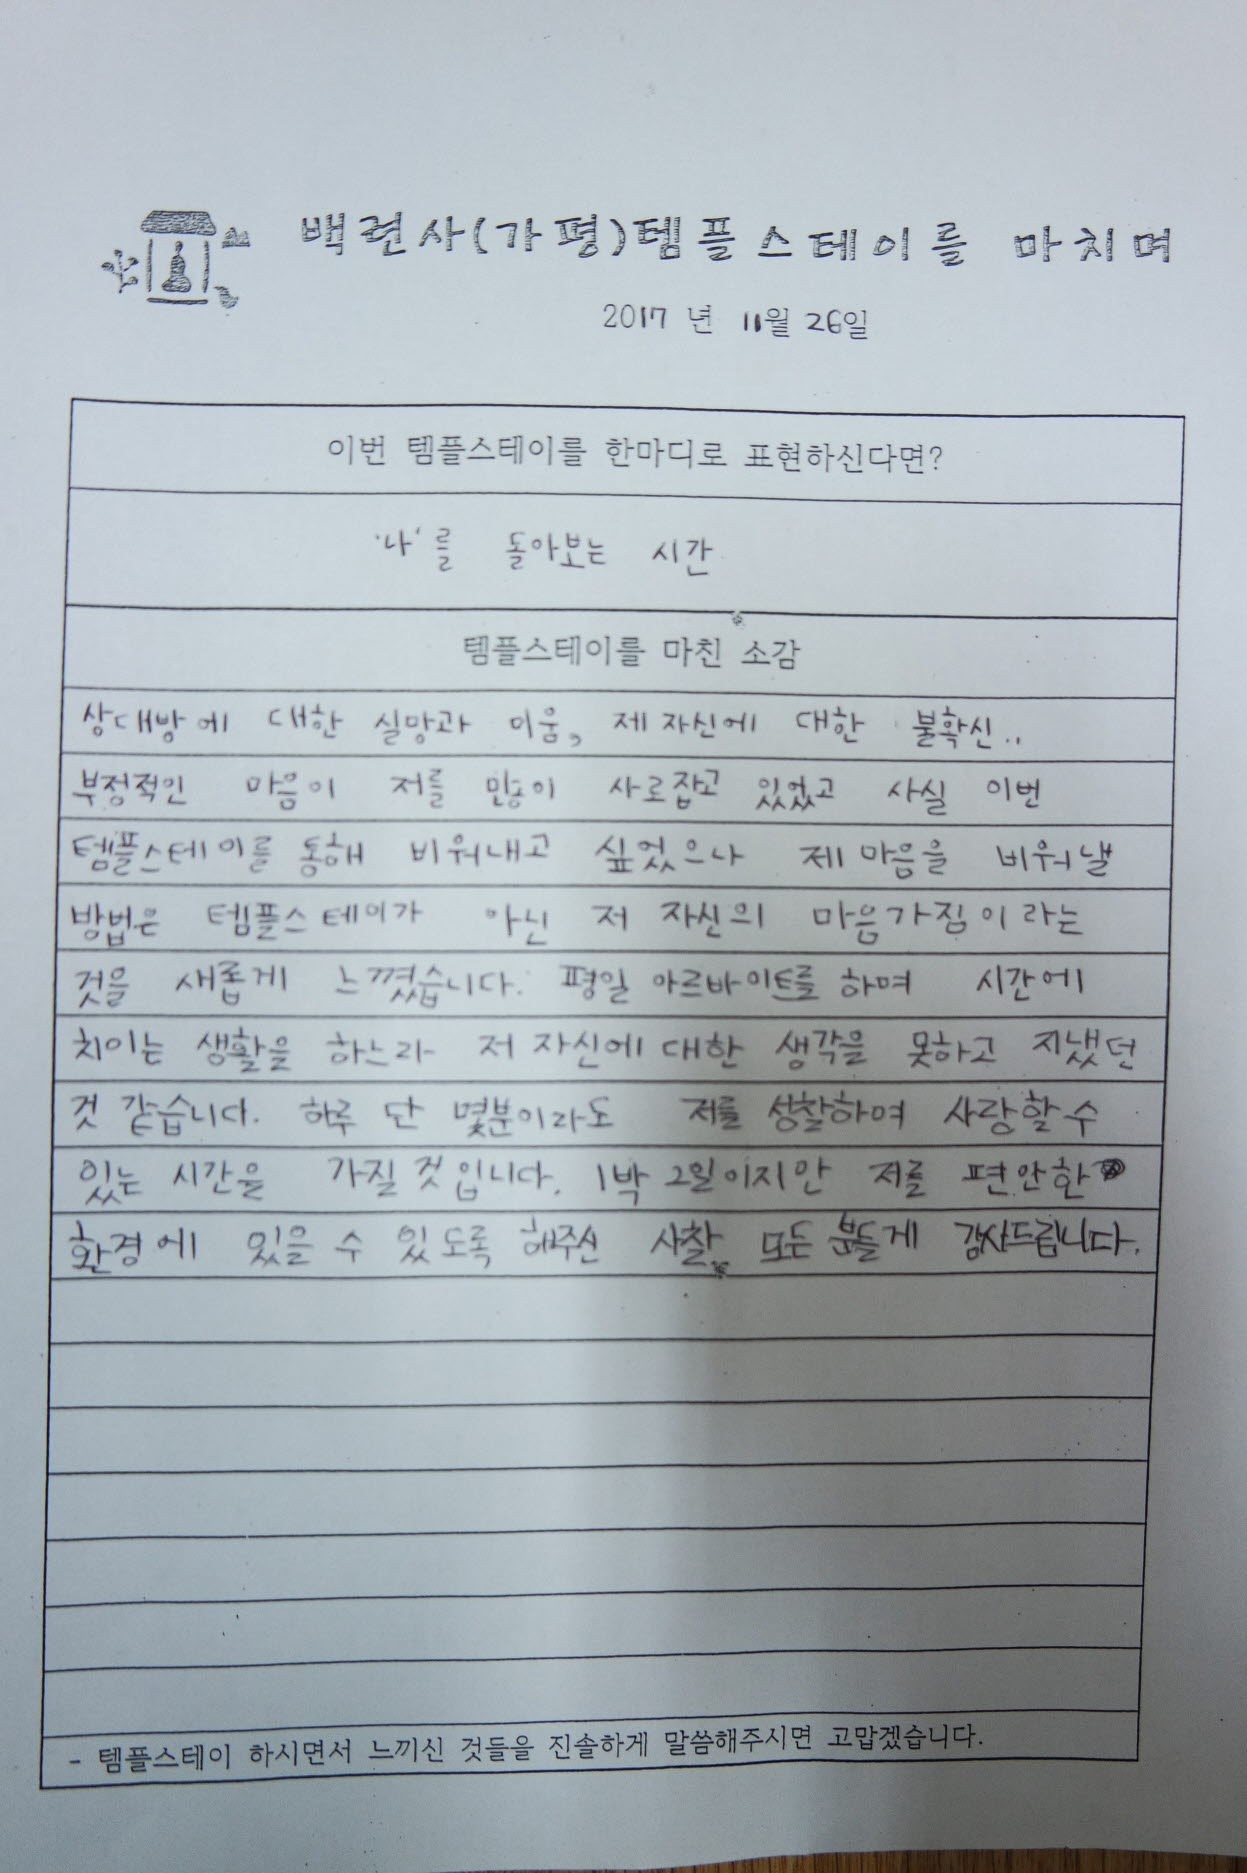 백련사(가평)템플스테이를 마치며
2017 년 11월 26일
이번 템플스테이를 한마디로 표현하신다면?
'나'를 돌아보는 시간
템플스테이를 마친 소감
상대방에 대한 실망과 미움, 제 자신에 대한 불확신..
부정적인 마음이 저를 많이 사로잡고 있었고 사실 이번
템플스테이를 통해 비워내고 싶었으나 제 마음을 비워낼
방법은 템플스테이가 아닌 저 자신의 마음가짐이라는
것을 새롭게 느꼈습니다. 평일 아르바이트를 하며 시간에
치이는 생활을 하느라 저 자신에 대한 생각을 못하고 지냈던
것 같습니다. 하루 단 몇분이라도 저를 성찰하며 사랑할 수
있는 시간을 가질 것입니다. 1박 2일이지만 저를 편안한
환경에 있을 수 있도록 해주신 사찰 모든 분들게 감사드립니다.
- 템플스테이 하시면서 느끼신 것들을 진솔하게 말씀해주시면 고맙겠습니다.